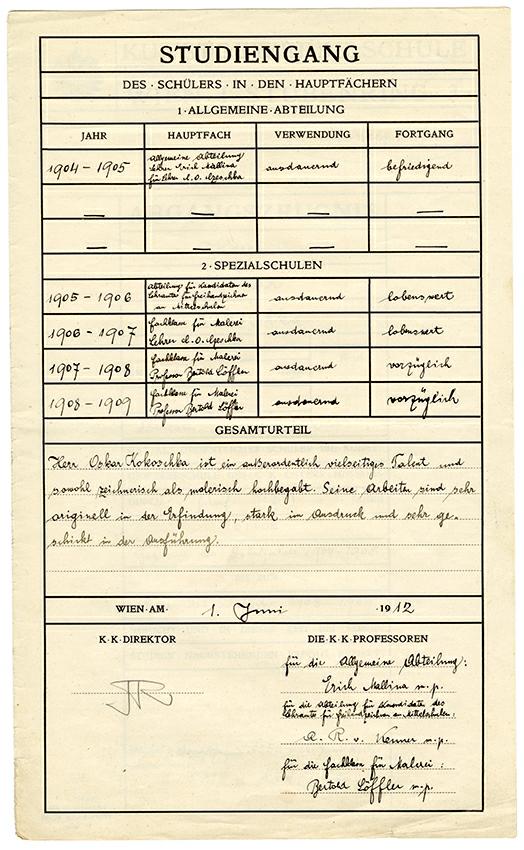 STUDIENGANG
DES · SCHÜLERS · IN · DEN · HAUPTFÄCHERN
1 · ALLGEMEINE · ABTEILUNG
JAHR HAUPTFACH VERWENDUNG FORTGANG
1904 – 1905 Allgemeine Abteilung ausdauernd befriedigend
Lehrer Erich Mallina
für Lehrer C. O. Czeschka
2 · SPEZIALSCHULEN
1905 – 1906 Abteilung für Kandidaten des ausdauernd lobenswert
Lehramtes für Freihandzeichnen
an Mittelschulen
1906 – 1907 Fachklasse für Malerei ausdauernd lobenswert
Lehrer C. O. Czeschka
1907 – 1908 Fachklasse für Malerei ausdauernd vorzüglich
Professor Bertold Löffler
1908 – 1909 Fachklasse für Malerei ausdauernd vorzüglich
Professor Bertold Löffler
GESAMTURTEIL
Herr Oskar Kokoschka ist ein außerordentlich vielseitiges Talent und
sowohl zeichnerisch als malerisch hochbegabt. Seine Arbeiten sind sehr
originell in der Erfindung, stark im Ausdruck und sehr ge-
schickt in der Ausführung.
WIEN · AM · 1. Juni · 1912
K · K · DIREKTOR DIE · K · K · PROFESSOREN
für die Allgemeine Abteilung:
Erich Mallina m. p.
für die Abteilung für Kandidaten des
Lehramtes für Freihandzeichnen an Mittelschulen:
A. R. v. Kenner m. p.
für die Fachklasse für Malerei:
Bertold Löffler m. p.